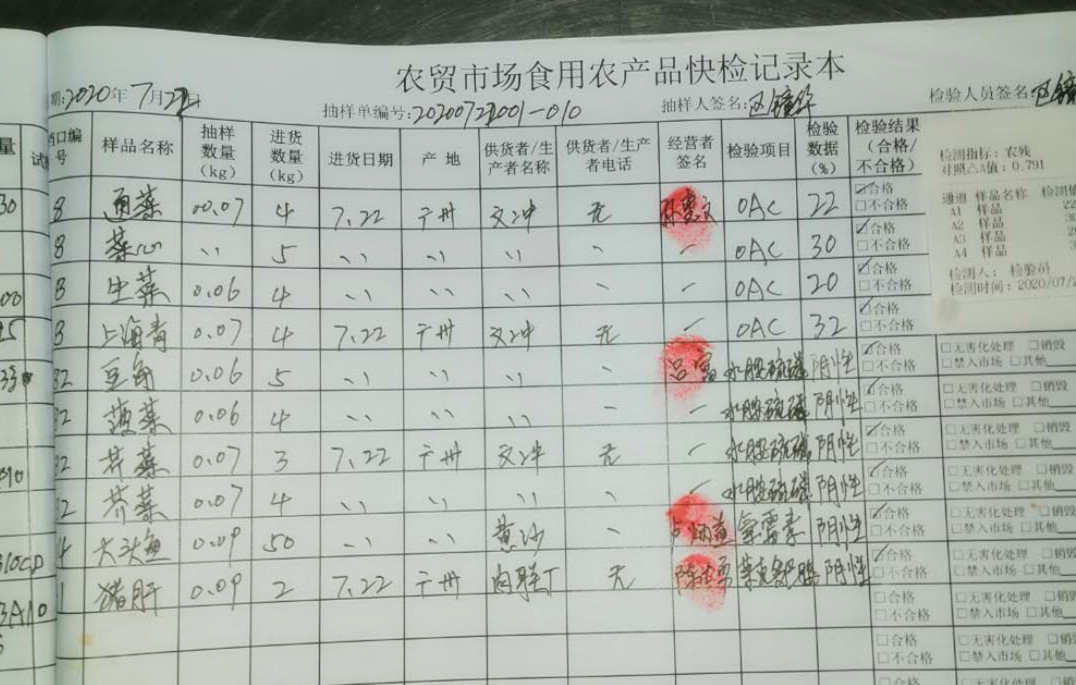 农贸市场食用农产品快检记录本
期:2020年7月22日 抽样单编号:20200722001-010 抽样人签名: 检验人员签名:
量 档口编号 样品名称 抽样数量(kg) 进货数量(kg) 进货日期 产地 供货者/生产者名称 供货者/生产者电话 经营者签名 检验项目 检验数据(%) 检验结果(合格/不合格)
8 通菜 00.07 4 7.22 广州 文冲 无 OAC 22 ☑合格 □不合格
8 菜心 ヽヽ 5 ヽヽ ヽヽ ヽヽ ヽ OAC 30 ☑合格 □不合格
8 生菜 0.06 4 ヽヽ ヽヽ ヽヽ ヽ OAC 20 ☑合格 □不合格
8 上海青 0.07 4 7.22 广州 文冲 无 OAC 32 ☑合格 □不合格
32 豆角 0.06 5 ヽヽ ヽヽ ヽヽ ヽ 水胺硫磷 阴性 ☑合格 □不合格 □无害化处理 □销毁 □禁入市场 □其他
32 0.06 4 ヽヽ ヽヽ ヽヽ ヽ 水胺硫磷 阴性 ☑合格 □不合格 □无害化处理 □销毁 □禁入市场 □其他
32 芹菜 0.07 3 7.22 广州 文冲 无 水胺硫磷 阴性 ☑合格 □不合格 □无害化处理 □销毁 □禁入市场 □其他
2 芥菜 0.07 4 ヽヽ ヽヽ ヽヽ ヽ 水胺硫磷 阴性 ☑合格 □不合格 □无害化处理 □销毁 □禁入市场 □其他
4 大头鱼 0.09 50 ヽヽ ヽヽ 黄沙 ヽ 氯霉素 阴性 ☑合格 □不合格 □无害化处理 □销毁 □禁入市场 □其他
1 猪肝 0.09 2 7.22 广州 肉联厂 无 阴性 ☑合格 □不合格 □无害化处理 □销毁 □禁入市场 □其他
□合格 □不合格 □无害化处理 □销毁 □禁入市场 □其他
□合格 □不合格 □无害化处理 □销毁 □禁入市场 □其他
□合格 □无害化处理
检测指标: 农残
对照△A值: 0.791
通道 样品名称 检测值
A1 样品 22
A2 样品 30
A3 样品 20
A4 样品 3
检测人: 检验员
检测时间: 2020/07/2